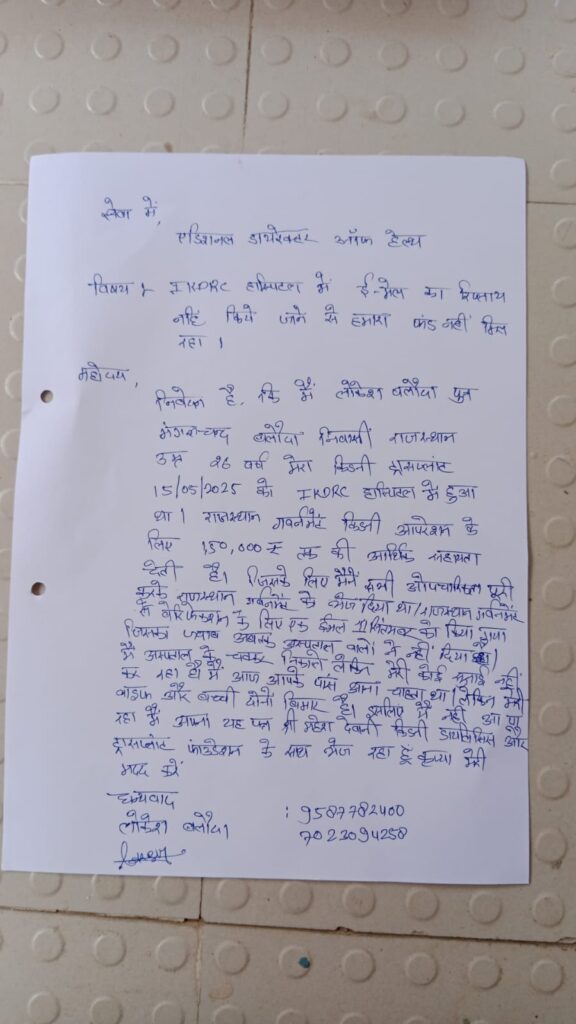 सेवा में,
एडिशनल डायरेक्टर ऑफ हेल्थ
विषय :- IKDRC हास्पिटल में ई-मेल का रिप्लाय
नहिं किये जाने से हमारा फंड नहीं मिल
रहा ।
महोदय,
निवेदन है, कि मैं लोकेश बलौदा पुत्र
मंगलचन्द बलौदा निवासी राजस्थान
उम्र 26 वर्ष मेरा किडनी ट्रांसप्लांट
15/05/2025 को IKDRC हास्पिटल में हुआ
था। राजस्थान गवर्नमेंट किडनी आपरेशन के
लिए 1,50,000 ₹ तक की आर्थिक सहायता
देती है। जिसके लिए मैंने सभी औपचारिकता पूरी
करके राजस्थान गवर्नमेंट को भेज दिया था। राजस्थान गवर्नमेंट
से वेरिफिकेशन के लिए एक ईमेल 11 सितम्बर को किया गया
जिसका जवाब अबतक अस्पताल वालो ने नहीं दिया है।
मैं अस्पताल के चक्कर निकाले लेकिन मेरी कोई सुनाई नहीं
कर रहा है। मैं आज आपके पास आना चाहता था। लेकिन मेरी
वाइफ और बच्ची दोनों बिमार है। इसलिए मैं नहीं आ पा
रहा मैं अपना यह पत्र श्री महेश देवानी किडनी डायलिसिस और
ट्रांसप्लांट फाउंडेशन के साथ भेज रहा हूं कृपया मेरी
मदद करें
धन्यवाद
लोकेश बलौदा : 9587782400
7023094258